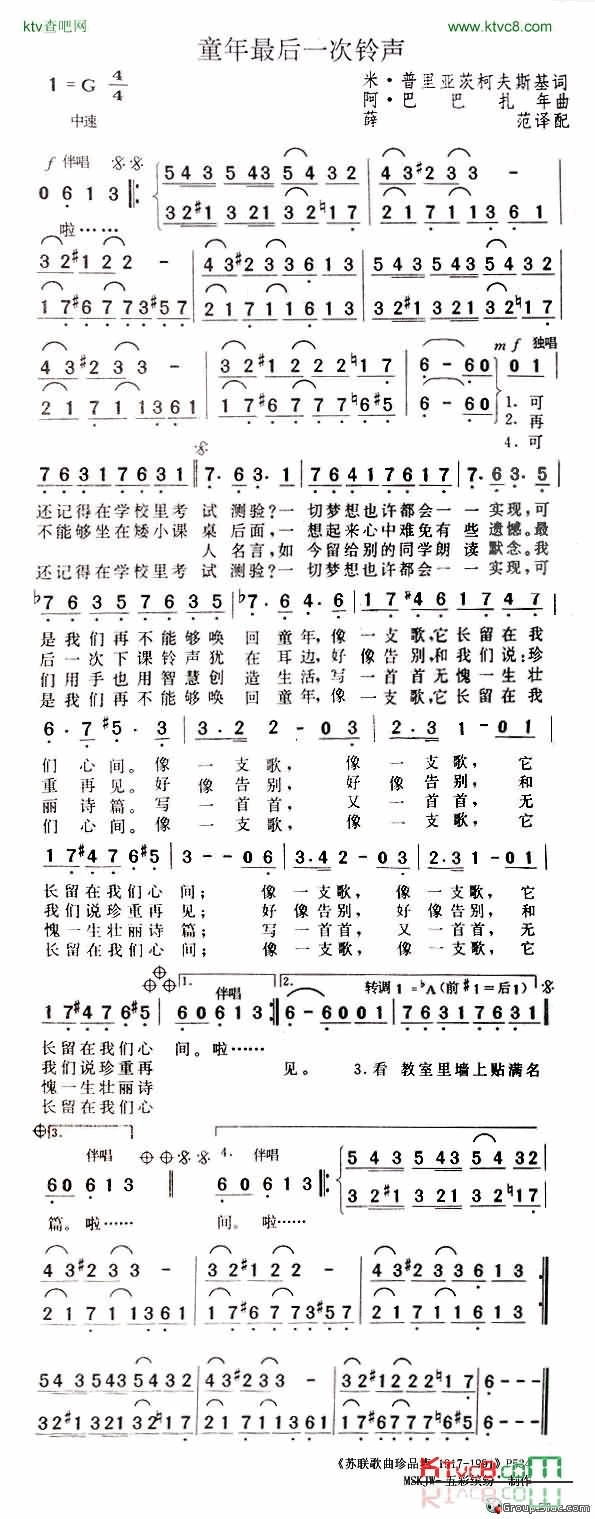 ktv查吧网
www.ktvc8.com
童年最后一次铃声
1=G 4/4
米·普里亚茨柯夫斯基词
阿·巴巴扎年曲
薛范译配
中速
f 伴唱
0 6 1 3
5 4 3 5 4 3 5 4 3 2 5 4 | 4 3 #2 3 3 –
3 2 #1 3 2 1 3 2 1 3 2 ♮1 7 | 2 1 7 1 1 1 3 6 1
啦……
3 2 #1 2 2 – | 4 3 #2 3 3 6 1 3 | 5 4 3 5 4 3 5 4 3 2 5 4
1 7 #6 7 7 3 #5 7 | 2 1 7 1 1 6 1 3 | 3 2 #1 3 2 1 3 2 1 3 2 ♮1 7
4 3 #2 3 3 – | 3 2 #1 2 2 2 ♮1 7 | 6 – 6 0 | 0 1
2 1 7 1 1 3 6 1 | 1 7 #6 7 7 7 ♮6 #5 | 6 – 6 0
mf 独唱
1.可
2.再
4.可
7 6 3 1 7 6 3 1 | 7. 6 3. 1 | 7 6 4 1 7 6 1 7 | 7. 6 3. 5
还记得在学校里考试测验?一切梦想也许都会一一实现,可
不能够坐在矮小课桌后面,一想起来心中难免有些遗憾。最
人名言,如今留给别的同学朗读默念。我
还记得在学校里考试测验?一切梦想也许都会一一实现,可
♭7 6 3 5 7 6 3 5 | ♭7. 6 4. 6 | 1 7 #4 6 1 7 4 7
是我们再不能够唤回童年,像一支歌,它长留在我
后一次下课铃声犹在耳边,好像告别,和我们说:珍
们用手也用智慧创造生活,写一首首无愧一生壮
是我们再不能够唤回童年,像一支歌,它长留在我
6. 7 #5. 3 | 3. 2 2 – 0 3 | 2. 3 1 – 0 1
们心间。像一支歌,像一支歌,它
重再见。好像告别,好像告别,和
丽诗篇。写一首首,又一首首,无
们心间。像一支歌,像一支歌,它
1 7 #4 7 6 #5 | 3 – – 0 6 | 3. 4 2 – 0 3 | 2. 3 1 – 0 1
长留在我们心间;像一支歌,像一支歌,它
我们说珍重再见;好像告别,好像告别,和
愧一生壮丽诗篇;写一首首,又一首首,无
长留在我们心间;像一支歌,像一支歌,它
1. 伴唱 2. 转调 1=♭A(前#1=后1)
1 7 #4 7 6 #5 | 6 0 6 1 3 | 6 – 6 0 0 1 | 7 6 3 1 7 6 3 1
长留在我们心间。啦……
我们说珍重再见。3.看教室里墙上贴满名
愧一生壮丽诗
长留在我们心
3. 伴唱 4. 伴唱
6 0 6 1 3 | 6 0 6 1 3 | 5 4 3 5 4 3 5 4 3 2 5 4
3 2 #1 3 2 1 3 2 1 3 2 ♮1 7
篇。啦…… 间。啦……
4 3 #2 3 3 – | 3 2 #1 2 2 – | 4 3 #2 3 3 6 1 3
2 1 7 1 1 3 6 1 | 1 7 #6 7 7 3 #5 7 | 2 1 7 1 1 6 1 3
5 4 3 5 4 3 5 4 3 2 5 4 | 4 3 #2 3 3 – | 3 2 #1 2 2 2 ♮1 7 | 6 – –
3 2 #1 3 2 1 3 2 1 3 2 ♮1 7 | 2 1 7 1 1 3 6 1 | 1 7 #6 7 7 7 ♮6 #5 | 6 – –
《苏联歌曲珍品集 1917-1991》P534
MSKJW- 五彩缤纷 制作
Ktvc8.com
Group.Stnc.com